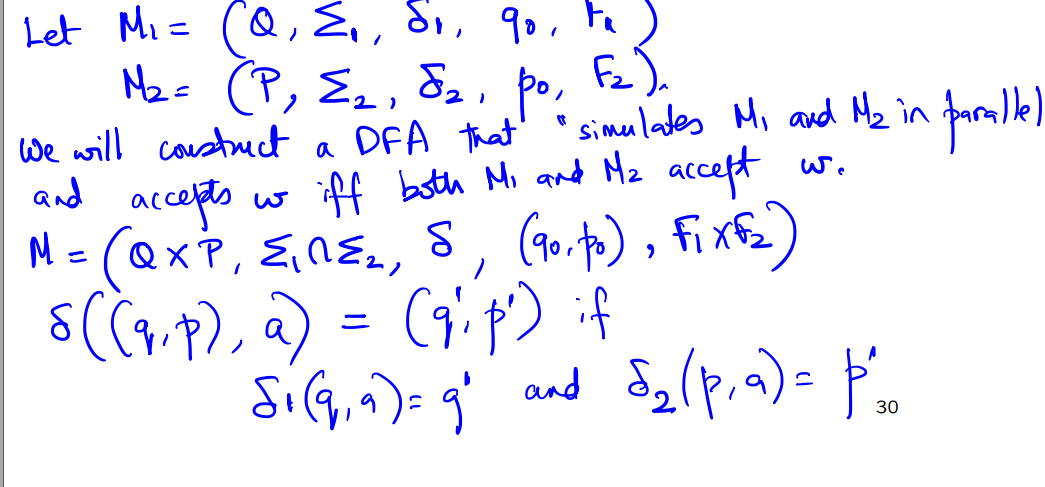 Let M₁ = (Q, Σ₁, δ₁, q₀, F₁)
M₂ = (P, Σ₂, δ₂, p₀, F₂).
We will construct a DFA that "simulates M₁ and M₂ in parallel
and accepts w iff both M₁ and M₂ accept w.
M = (Q × P, Σ₁∩Σ₂, δ, (q₀,p₀), F₁×F₂)
δ((q,p), a) = (q',p') if
δ₁(q,a) = q' and δ₂(p,a) = p'
30